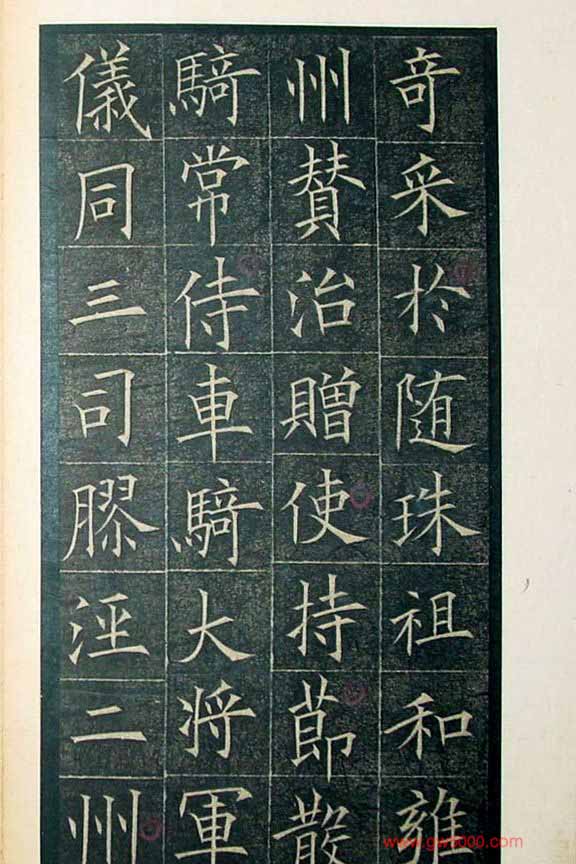 奇采於随珠祖和雍
州賛治贈使持節散
騎常侍車騎大将軍
儀同三司膠涇二州
www.gw5000.com